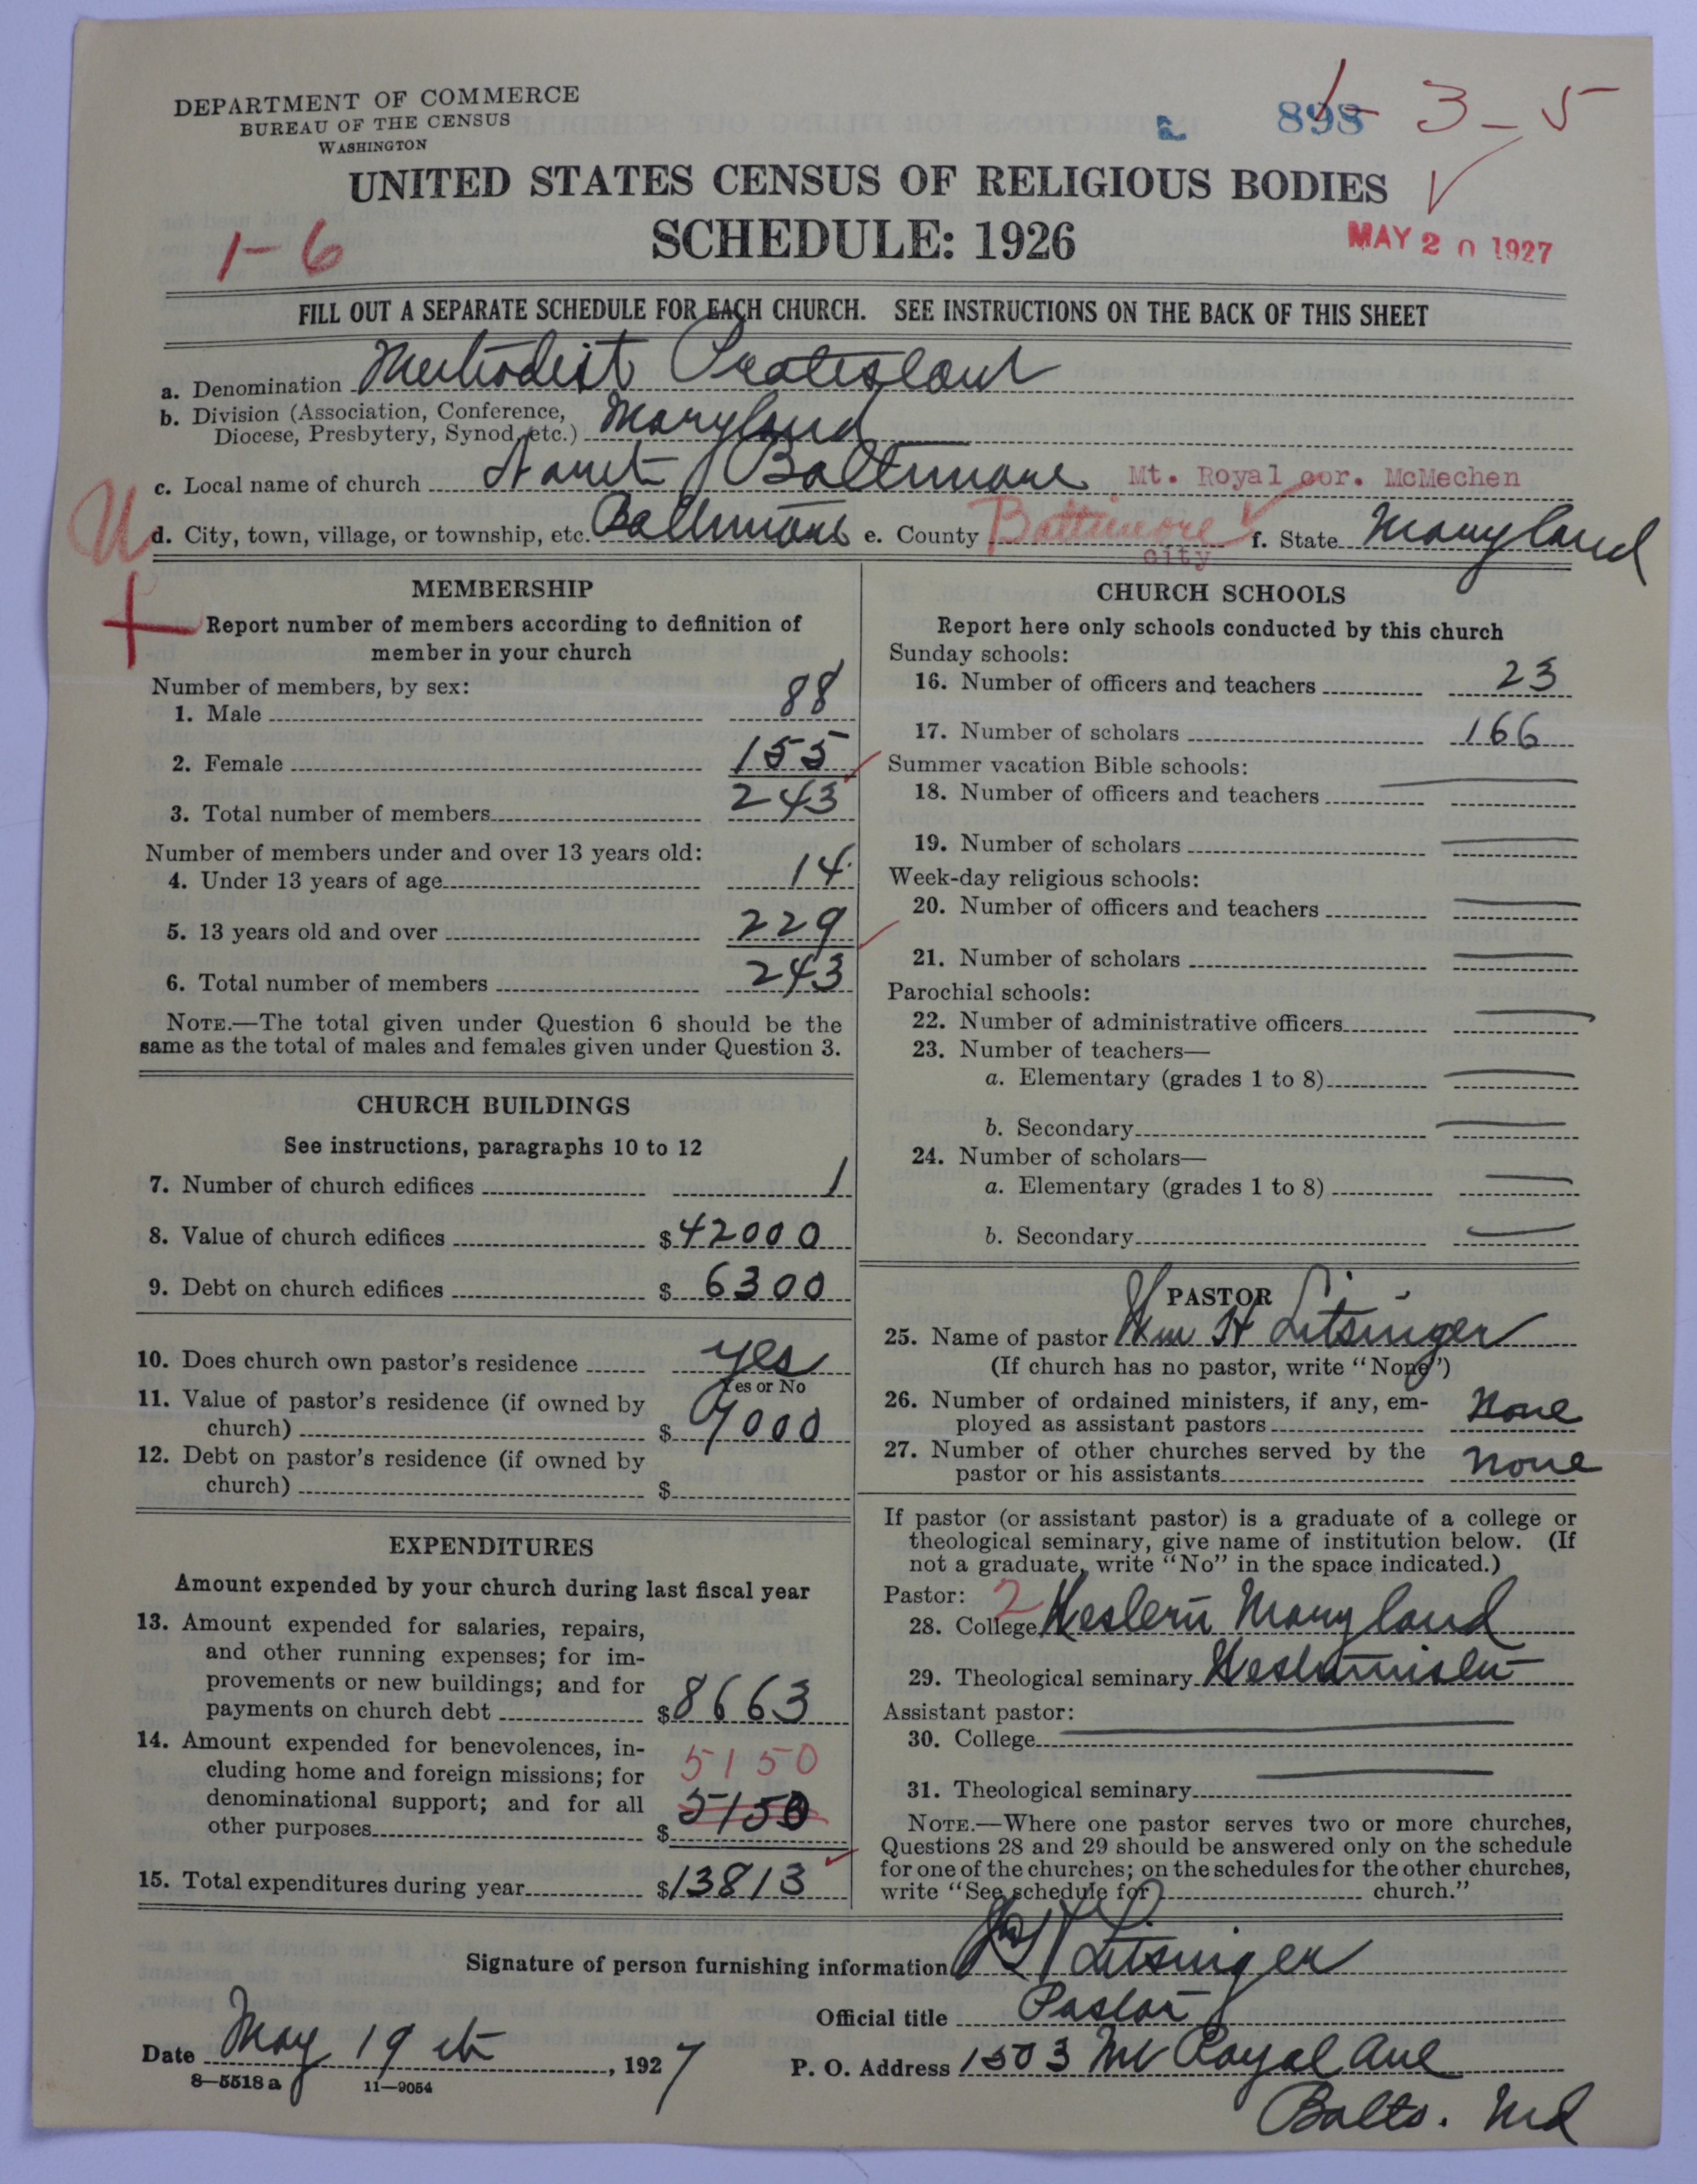 DEPARTMENT OF COMMERCE
BUREAU OF THE CENSUS
WASHINGTON
898 1-3-5
UNITED STATES CENSUS OF RELIGIOUS BODIES
SCHEDULE: 1926
1-6
MAY 20 1927
FILL OUT A SEPARATE SCHEDULE FOR EACH CHURCH. SEE INSTRUCTIONS ON THE BACK OF THIS SHEET
a. Denomination Methodist Protestant
b. Division (Association, Conference,
Diocese, Presbytery, Synod, etc.) Maryland
c. Local name of church Baltimore Mt. Royal cor. McMechen
U
d. City, town, village, or township, etc. Baltimore e. County Baltimore city f. State Maryland
MEMBERSHIP
Report number of members according to definition of
member in your church
Number of members, by sex:
1. Male 88
2. Female 155
3. Total number of members 243
Number of members under and over 13 years old:
4. Under 13 years of age 14
5. 13 years old and over 229
6. Total number of members 243
NOTE.—The total given under Question 6 should be the
same as the total of males and females given under Question 3.
CHURCH BUILDINGS
See instructions, paragraphs 10 to 12
7. Number of church edifices 1
8. Value of church edifices $42000
9. Debt on church edifices $6300
10. Does church own pastor's residence yes
Yes or No
11. Value of pastor's residence (if owned by
church) $7000
12. Debt on pastor's residence (if owned by
church) $
EXPENDITURES
Amount expended by your church during last fiscal year
13. Amount expended for salaries, repairs,
and other running expenses; for im-
provements or new buildings; and for
payments on church debt $8663
14. Amount expended for benevolences, in-
cluding home and foreign missions; for 5150
denominational support; and for all 5150
other purposes $
15. Total expenditures during year $13813
CHURCH SCHOOLS
Report here only schools conducted by this church
Sunday schools:
16. Number of officers and teachers 23
17. Number of scholars 166
Summer vacation Bible schools:
18. Number of officers and teachers
19. Number of scholars
Week-day religious schools:
20. Number of officers and teachers
21. Number of scholars
Parochial schools:
22. Number of administrative officers
23. Number of teachers—
a. Elementary (grades 1 to 8)
b. Secondary
24. Number of scholars—
a. Elementary (grades 1 to 8)
b. Secondary
PASTOR
25. Name of pastor Wm H Litsinger
(If church has no pastor, write "None")
26. Number of ordained ministers, if any, em-
ployed as assistant pastors None
27. Number of other churches served by the
pastor or his assistants None
If pastor (or assistant pastor) is a graduate of a college or
theological seminary, give name of institution below. (If
not a graduate, write "No" in the space indicated.)
Pastor: 2
28. College Western Maryland
29. Theological seminary Westminster
Assistant pastor:
30. College
31. Theological seminary
NOTE.—Where one pastor serves two or more churches,
Questions 28 and 29 should be answered only on the schedule
for one of the churches; on the schedules for the other churches,
write "See schedule for church."
Signature of person furnishing information Litsinger
Official title Pastor
Date May 19th, 1927
P. O. Address 1503 Mt Royal Ave
Balto. Md
8-5518 a 11-9054